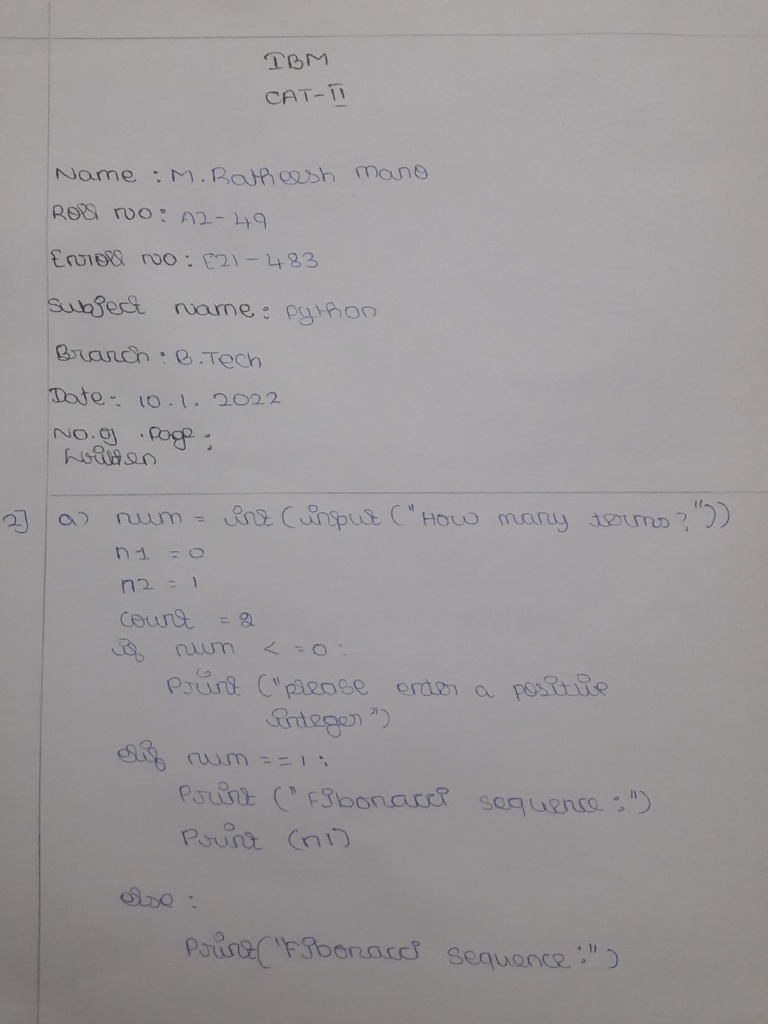 IBM
CAT-II
Name : M. Ratheesh mano
Roll no : A2-49
Enroll no : E21-483
Subject name : python
Branch : B.Tech
Date :- 10.1.2022
No. of page :
written
2] a) num = int (input ("How many terms?"))
n1 = 0
n2 = 1
count = 2
if num <= 0 :
Print ("please enter a positive
integer")
elif num == 1 :
Print ("Fibonacci sequence :")
Print (n1)
else :
Print ("Fibonacci sequence :")